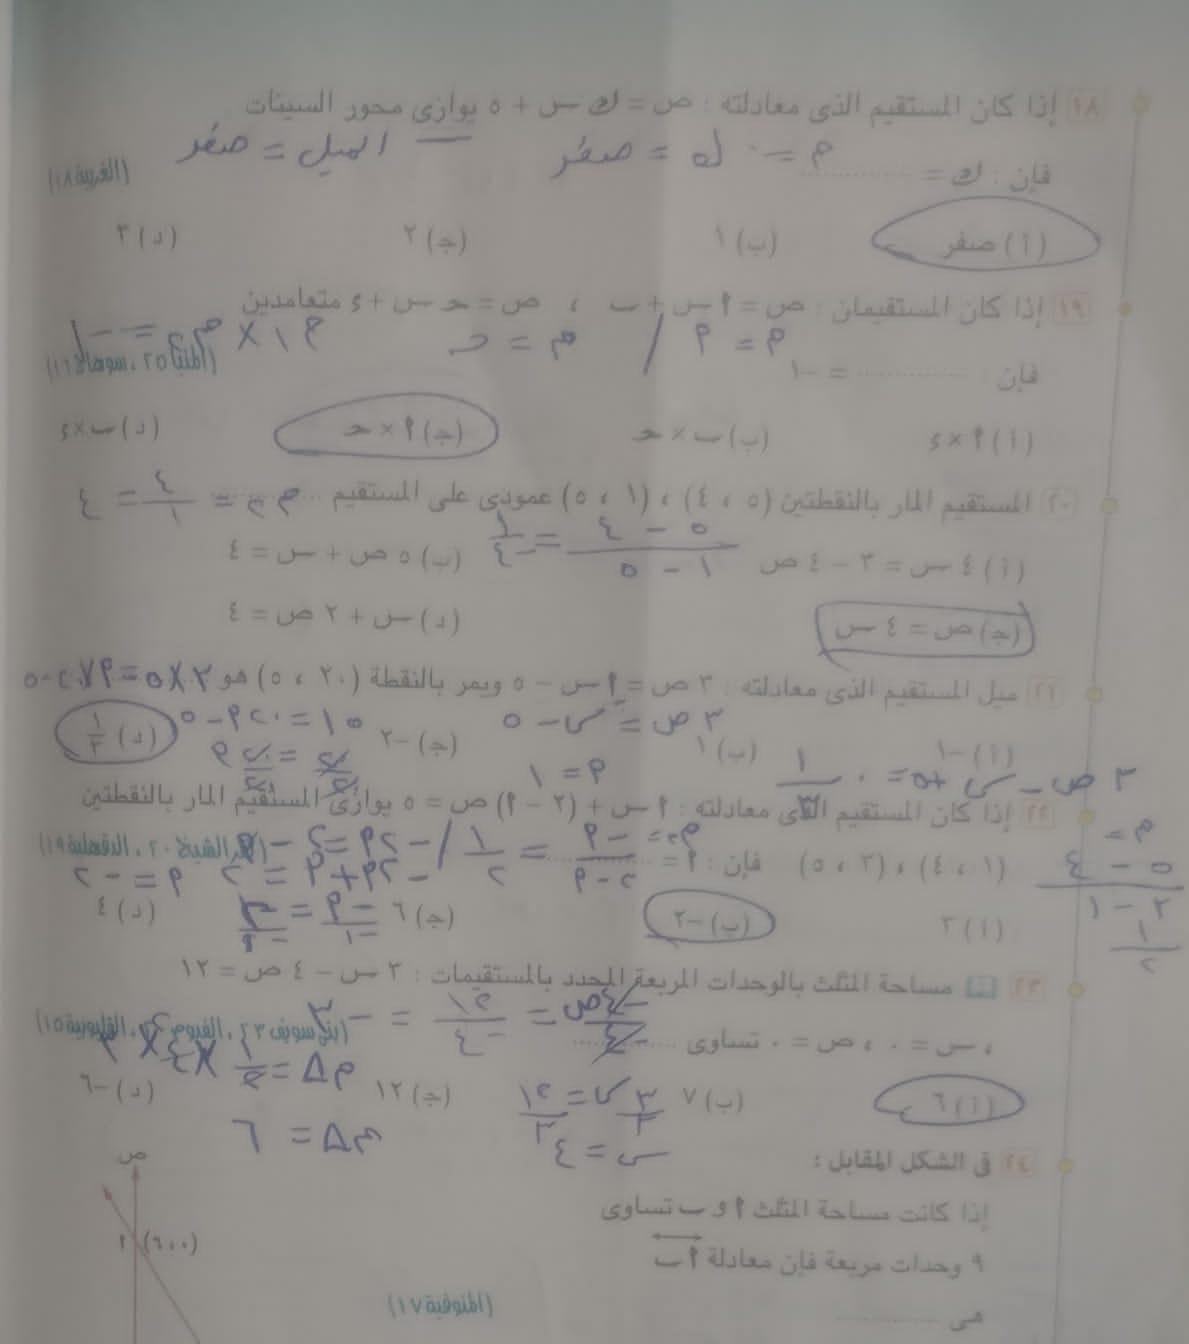 ١٨ إذا كان المستقيم الذى معادلته : ص = ك س + ٥ يوازى محور السينات
م = ٠ ك = صفر الميل = صفر
فإن : ك = ............ (الغربية ١٨)
(أ) صفر (ب) ١ (ج) ٢ (د) ٣
١٩ إذا كان المستقيمان : ص = أ س + ب ، ص = حـ س + ء متعامدين
م = أ / م = حـ
فإن : ............ = -١
(أ) أ × ء (ب) ب × حـ (ج) أ × حـ (د) ب × ء
٢٠ المستقيم المار بالنقطتين (٥ ، ٤) ، (١ ، ٥) عمودى على المستقيم ............ = ٤/١ = ٤
٥ - ٤ / ١ - ٥ = ١/-٤
(أ) ٤ س = ٣ - ٤ ص (ب) ٥ ص + س = ٤
(ج) ص = ٤ س (د) س + ٢ ص = ٤
٢١ ميل المستقيم الذى معادلته : ٣ ص = أ س - ٥ ويمر بالنقطة (٢٠ ، ٥) هو
٣ ص = س - ٥ ١٥ = ٢٠ أ - ٥
(أ) -١ (ب) ١ (ج) -٢ (د) ١/٣
أ = ١
٣ ص - س + ٥ = ٠
٢٢ إذا كان المستقيم الذى معادلته : أ س + (٢ - أ) ص = ٥ يوازى المستقيم المار بالنقطتين
(١ ، ٤) ، (٣ ، ٥) فإن : أ = ............
م = ٥ - ٤ / ٣ - ١
١/٢
-أ / ٢ - أ = ١/٢ / -٢أ = ٢ - أ
-٢أ + أ = ٢ أ = -٢
(أ) ٣ (ب) -٢ (ج) ٦ (د) ٤
٢٣ مساحة المثلث بالوحدات المربعة المحدد بالمستقيمات : ٣ س - ٤ ص = ١٢
، س = ٠ ، ص = ٠ تساوى ............
-٤ص / -٤ = ١٢ / -٤ = -٣
(أ) ٦ (ب) ٧ (ج) ١٢ (د) -٦
٣ س / ٣ = ١٢ / ٣
س = ٤
م∆ = ١/٢ × ٤ × ٣
م∆ = ٦
٢٤ فى الشكل المقابل :
إذا كانت مساحة المثلث أ و ب تساوى
٩ وحدات مربعة فإن معادلة أ ب
هى ............
(المنوفية ١٧)
ص
أ (٦،٠)